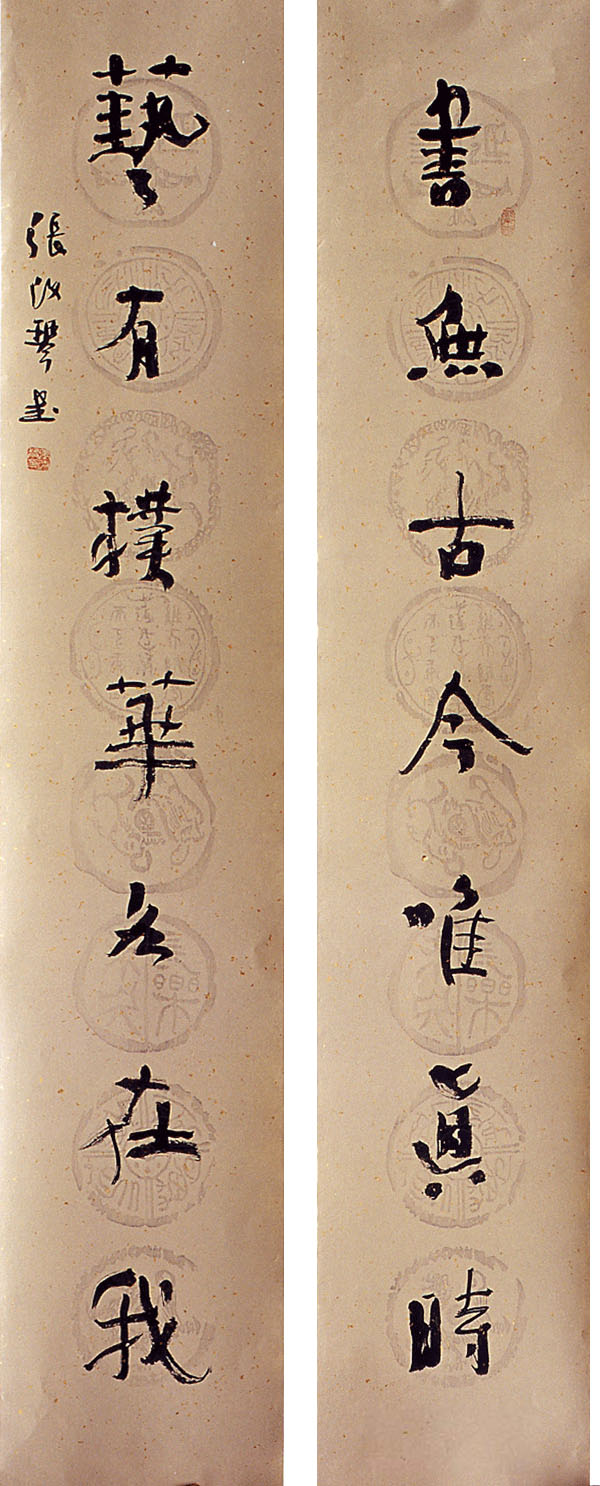 書無古今唯眞時
藝有樸華各在我
張改琴